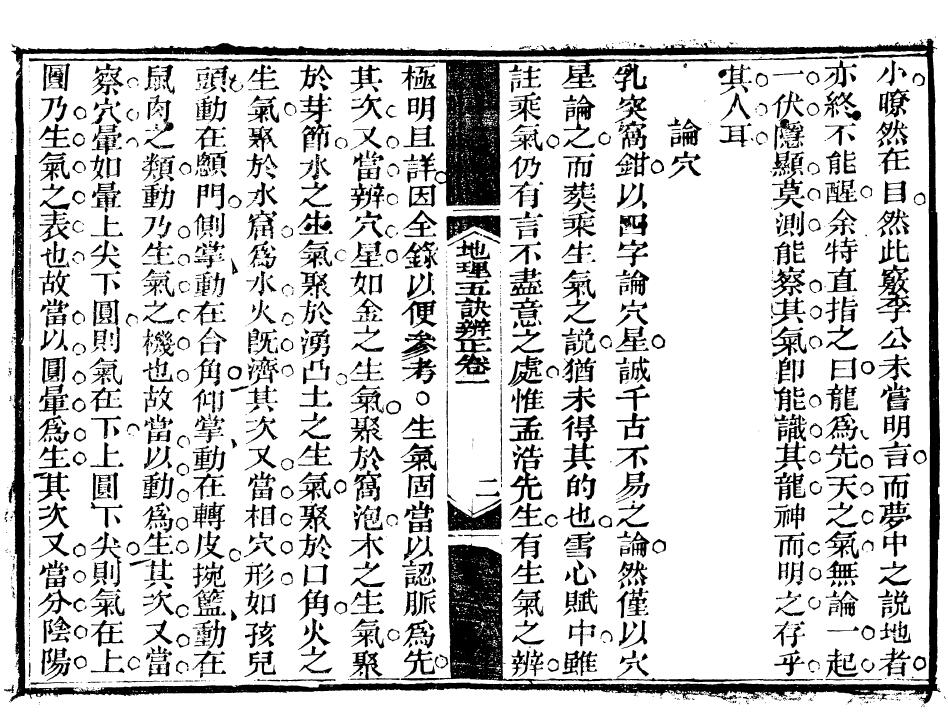 小暸然在目然此竅李公未嘗明言而夢中之説地者
亦終不能醒余特直指之曰龍爲先天之氣無論一起
一伏隱顯莫測能察其氣卽能識其龍神而明之存乎
其人耳
論穴
乳突窩鉗以四字論穴星誠千古不易之論然僅以穴
星論之而葬乘生氣之説猶未得其的也雪心賦中雖
註乘氣仍有言不盡意之處惟孟浩先生有生氣之辨
地理五訣辨正卷一
二
極明且詳因全錄以便參考○生氣固當以認脈爲先
其次又當辨穴星如金之生氣聚於窩泡木之生氣聚
於芽節水之生氣聚於湧凸土之生氣聚於口角火之
生氣聚於水窟爲水火旣濟其次又當相穴形如孩兒
頭動在顖門側掌動在合角仰掌動在轉皮挽籃動在
鼠肉之類動乃生氣之機也故當以動爲生其次又當
察穴暈如暈上尖下圓則氣在下上圓下尖則氣在上
圓乃生氣之表也故當以圓暈爲生其次又當分陰陽